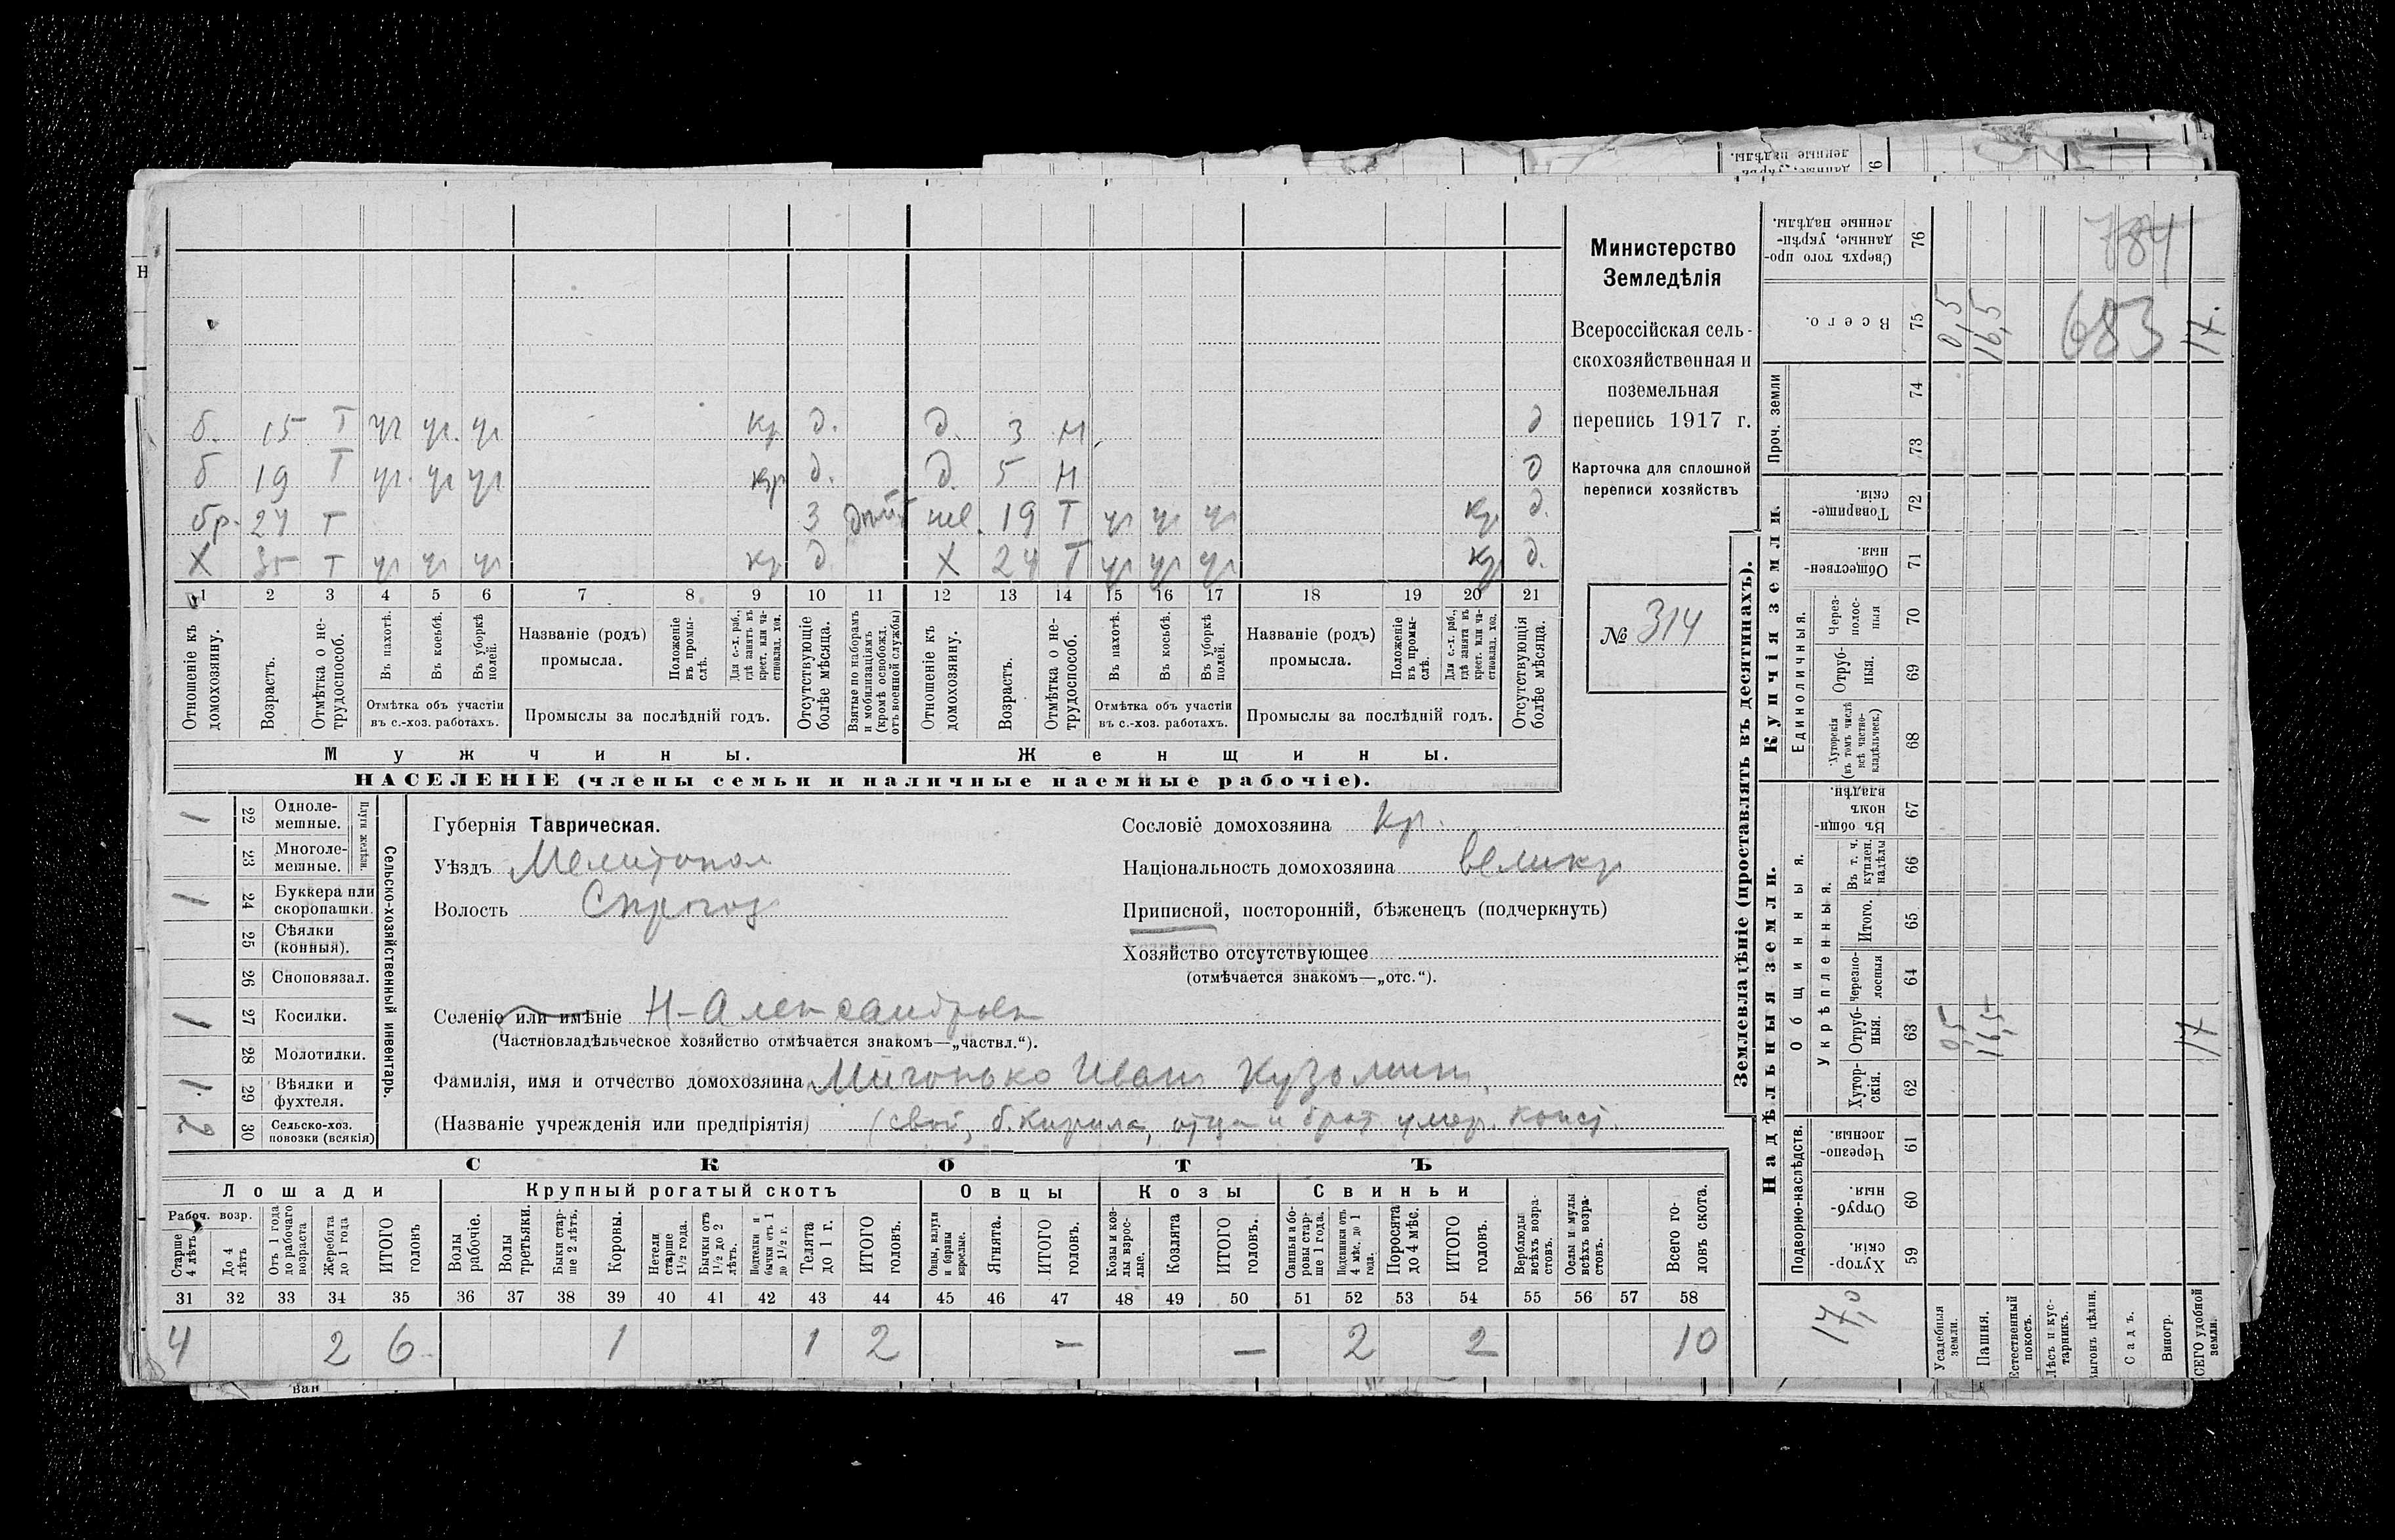 Министерство
Земледѣлія
Всероссійская сель-
скохозяйственная и
поземельная
перепись 1917 г.
Карточка для сплошной
переписи хозяйствъ
№ 314
б. 15 Т уч уч. уч кр д. д. 3 Н д
б 19 Т уч. уч уч кр д. д. 5 Н д
бр. 27 Т 3 нев. 19 Т уч уч уч кр д.
Х 35 Т уч уч уч кр д Х 24 Т уч уч уч кр д.
1 2 3 4 5 6 7 8 9 10 11 12 13 14 15 16 17 18 19 20 21
Отношеніе къ домохозяину.
Возрастъ.
Отмѣтка о не-трудоспособ.
Въ пахотѣ.
Въ косьбѣ.
Въ уборкѣ полей.
Отмѣтка объ участіи
въ с.-хоз. работахъ.
Названіе (родъ)
промысла.
Положеніе въ промы-слѣ.
Для с.-х. раб., гдѣ занятъ въ крест. или ча-стновлад. хоз.
Промыслы за послѣдній годъ.
Отсутствующіе болѣе мѣсяца.
Взятые по наборамъ и мобилизаціямъ (кромѣ освобожд. отъ военной службы)
Отношеніе къ домохозяину.
Возрастъ.
Отмѣтка о не-трудоспособ.
Въ пахотѣ.
Въ косьбѣ.
Въ уборкѣ полей.
Отмѣтка объ участіи
въ с.-хоз. работахъ.
Названіе (родъ)
промысла.
Положеніе въ промы-слѣ.
Для с.-х. раб., гдѣ занята въ крест. или ча-стновлад. хоз.
Промыслы за послѣдній годъ.
Отсутствующія болѣе мѣсяца.
Мужчины. Женщины.
НАСЕЛЕНІЕ (члены семьи и наличные наемные рабочіе).
Сельско-хозяйственный инвентарь.
Плуги желѣзн.
1 22 Одноле-мешные.
23 Многоле-мешные.
1 24 Буккера или скоропашки.
25 Сѣялки (конныя).
26 Сноповязал.
1 27 Косилки.
28 Молотилки.
1 29 Вѣялки и фухтеля.
2 30 Сельско-хоз. повозки (всякія)
Губернія Таврическая.
Уѣздъ Мелитопол
Волость Сирогоз
Селеніе или имѣніе Н-Александровк
(Частновладѣльческое хозяйство отмѣчается знакомъ—„частвл.“).
Фамилія, имя и отчество домохозяина Мигонько Иван Кузьмич,
(Названіе учрежденія или предпріятія) (свой, б. Кирила, отца и брат умер. Конст.
Сословіе домохозяина кр.
Національность домохозяина великр
Приписной, посторонній, бѣженецъ (подчеркнуть)
Хозяйство отсутствующее
(отмѣчается знакомъ—„отс.“).
СКОТЪ
Лошади
Рабоч. возр.
Старше 4 лѣтъ
До 4 лѣтъ
Отъ 1 года до рабочаго возраста
Жеребята до 1 года
ИТОГО головъ
Крупный рогатый скотъ
Волы рабочіе.
Волы третьяки.
Быки стар-ше 2 лѣтъ.
Коровы.
Нетели старше 1½ года.
Бычки отъ 1½ до 2 лѣтъ.
Подтелки и бычки отъ 1 до 1½ г.
Телята до 1 г.
ИТОГО головъ.
Овцы
Овцы, валухи и бараны взрослые.
Ягнята.
ИТОГО головъ.
Козы
Козы и коз-лы взрос-лые.
Козлята
ИТОГО головъ.
Свиньи
Свиньи и бо-ровы стар-ше 1 года.
Подсвинки отъ 4 мѣс. до 1 года.
Поросята до 4 мѣс.
ИТОГО головъ.
Верблюды всѣхъ возра-стовъ.
Ослы и мулы всѣхъ возра-стовъ.
Всего го-ловъ скота.
31 32 33 34 35 36 37 38 39 40 41 42 43 44 45 46 47 48 49 50 51 52 53 54 55 56 57 58
4 2 6 1 1 2 — — 2 2 10
Землевладѣніе (проставлять въ десятинахъ).
Сверхъ того про-данные, укрѣп-ленные надѣлы. 76 784
Всего. 75 0,5 16,5 683 17.
Проч. земли
74
73
Купчія земли.
Товарище-скія. 72
Обществен-ныя. 71
Единоличныя.
Через-полос-ныя 70
Отруб-ныя. 69
Хуторскія (въ томъ числѣ всѣ частно-владѣльческ.) 68
Надѣльныя земли.
Общинныя.
Въ общи-номъ владѣн. 67
Укрѣпленныя.
Въ т. ч. куплен. надѣлы 66
Итого. 65
Черезпо-лосныя 64
Отруб-ныя. 63 0,5 16,5 17
Хутор-скія. 62
Подворно-наслѣдств.
Черезпо-лосныя. 61
Отруб-ныя. 60
Хутор-скія. 59
17,0
Усадебныя земли.
Пашня.
Естественный покосъ.
Лѣсъ и кус-тарникъ.
ыгонъ цѣлин.
Садъ.
Виногр.
СЕГО удобной земли.